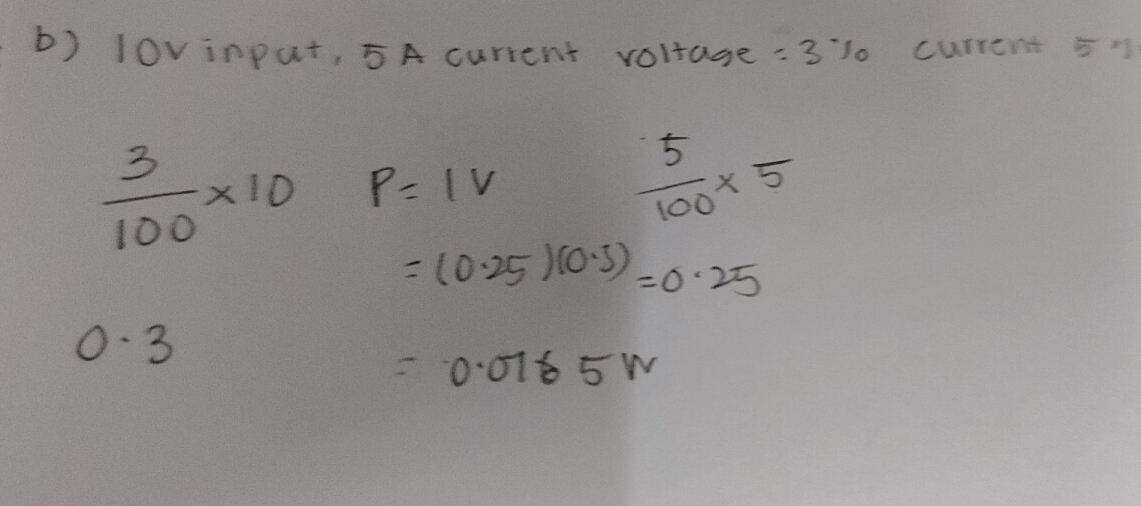 b) 10v input, 5 A current voltage = 3% current 5%
3/100 × 10 P = IV 5/100 × 5
= (0.25)(0.3) = 0.25
0.3
= 5 W